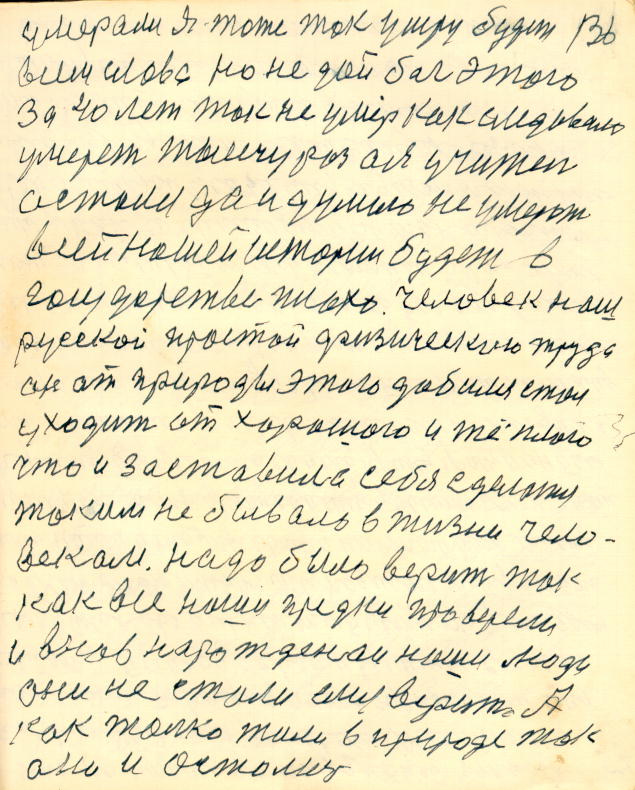 умерали я тоже так умру будет 136
всем слова но не дай бог этого
за 40 лет так не умер как следовало
умерет тысечу раз а я учител
остался да и думаю не умерт
всей нашей истории будет в
государстве плохо. человек наш
русской простой физическою труда
он от природы этого добился стал
уходит от хорошого и тёплого
что и заставила себя сделатся
таким не бывало в жизни чело-
веком. надо было верит так
как все наши предки проверели
и внов нарожденаи наши люди
они не стали ему верит. А
как толко жили в природе так
оно и осталис